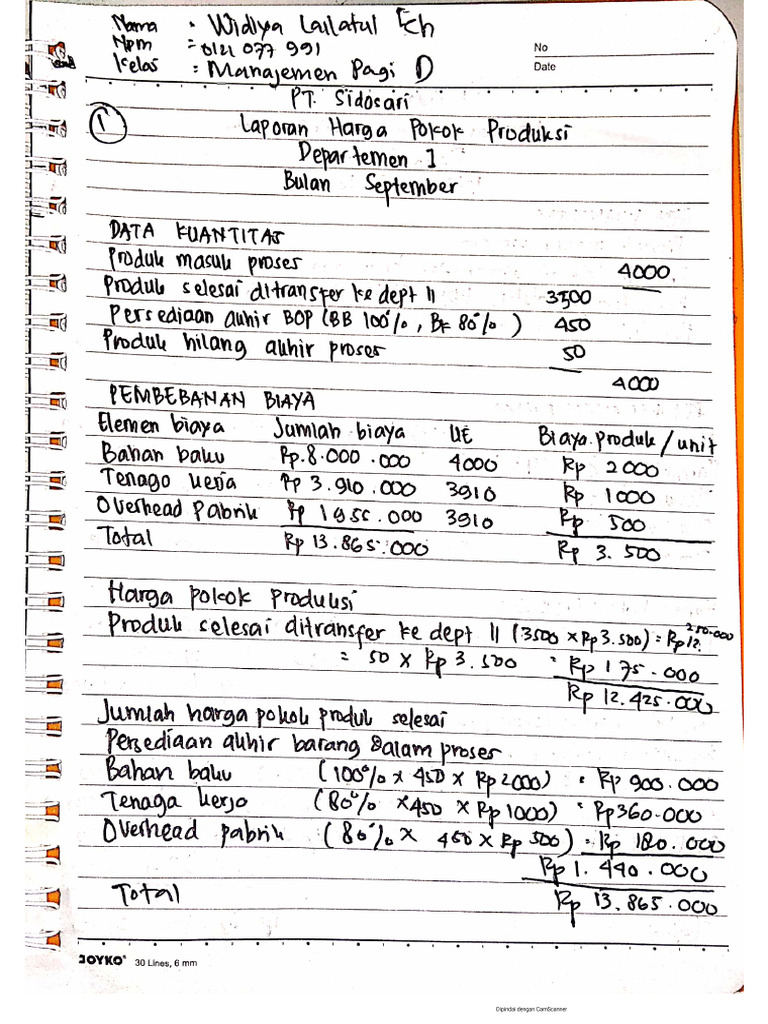 Nama : Widya Lailatul Ech
Npm = 0121 077 991
Kelas : Manajemen Pagi D
No
Date
PT. Sidosari
1
Laporan Harga Pokok Produksi
Departemen I
Bulan September
DATA KUANTITAS
Produk masuk proses 4000
Produk selesai ditransfer ke dept II 3500
Persediaan akhir BDP (BB 100%, BK 80%) 450
Produk hilang akhir proses 50
4000
PEMBEBANAN BIAYA
Elemen biaya Jumlah biaya UE Biaya produk/unit
Bahan baku Rp.8.000.000 4000 Rp 2000
Tenaga kerja Rp 3.910.000 3910 Rp 1000
Overhead Pabrik Rp 1955.000 3910 Rp 500
Total Rp 13.865.000 Rp 3.500
Harga pokok produksi
Produk selesai ditransfer ke dept II (3500 x Rp 3.500) = Rp 12.250.000
= 50 x Rp 3.500 = Rp 175.000
Rp 12.425.000
Jumlah harga pokok produk selesai
Persediaan akhir barang dalam proses
Bahan baku (100% x 450 x Rp 2000) = Rp 900.000
Tenaga kerja (80% x 450 x Rp 1000) = Rp 360.000
Overhead pabrik (80% x 450 x Rp 500) = Rp 180.000
Rp 1.440.000
Total Rp 13.865.000
JOYKO 30 Lines, 6 mm
Dipindai dengan CamScanner